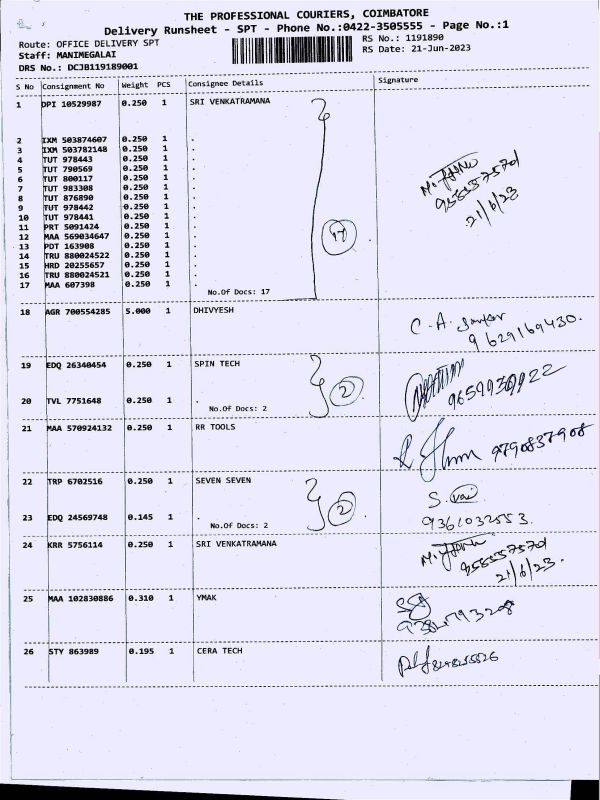 THE PROFESSIONAL COURIERS, COIMBATORE
Delivery Runsheet - SPT - Phone No.:0422-3505555 - Page No.:1
Route: OFFICE DELIVERY SPT RS No.: 1191890
Staff: MANIMEGALAI RS Date: 21-Jun-2023
DRS No.: DCJB119189001
S No Consignment No Weight PCS Consignee Details Signature
1 DPI 10529987 0.250 1 SRI VENKATRAMANA
2 IXM 503874607 0.250 1 .
3 IXM 503782148 0.250 1 .
4 TUT 978443 0.250 1 .
5 TUT 790569 0.250 1 .
6 TUT 800117 0.250 1 .
7 TUT 983308 0.250 1 .
8 TUT 876890 0.250 1 .
9 TUT 978442 0.250 1 .
10 TUT 978441 0.250 1 .
11 PRT 5091424 0.250 1 .
12 MAA 569034647 0.250 1 .
13 PDT 163908 0.250 1 .
14 TRU 880024522 0.250 1 .
15 HRD 20255657 0.250 1 .
16 TRU 880024521 0.250 1 .
17 MAA 607398 0.250 1 .
No.Of Docs: 17
17
21/6/23
18 AGR 700554285 5.000 1 DHIVYESH
C. A.
9629169430.
19 EDQ 26340454 0.250 1 SPIN TECH
2
20 TVL 7751648 0.250 1 .
No.Of Docs: 2
21 MAA 570924132 0.250 1 RR TOOLS
9790837908
22 TRP 6702516 0.250 1 SEVEN SEVEN
2
S.
23 EDQ 24569748 0.145 1 .
9361032553.
No.Of Docs: 2
24 KRR 5756114 0.250 1 SRI VENKATRAMANA
21/6/23.
25 MAA 102830886 0.310 1 YMAK
26 STY 863989 0.195 1 CERA TECH